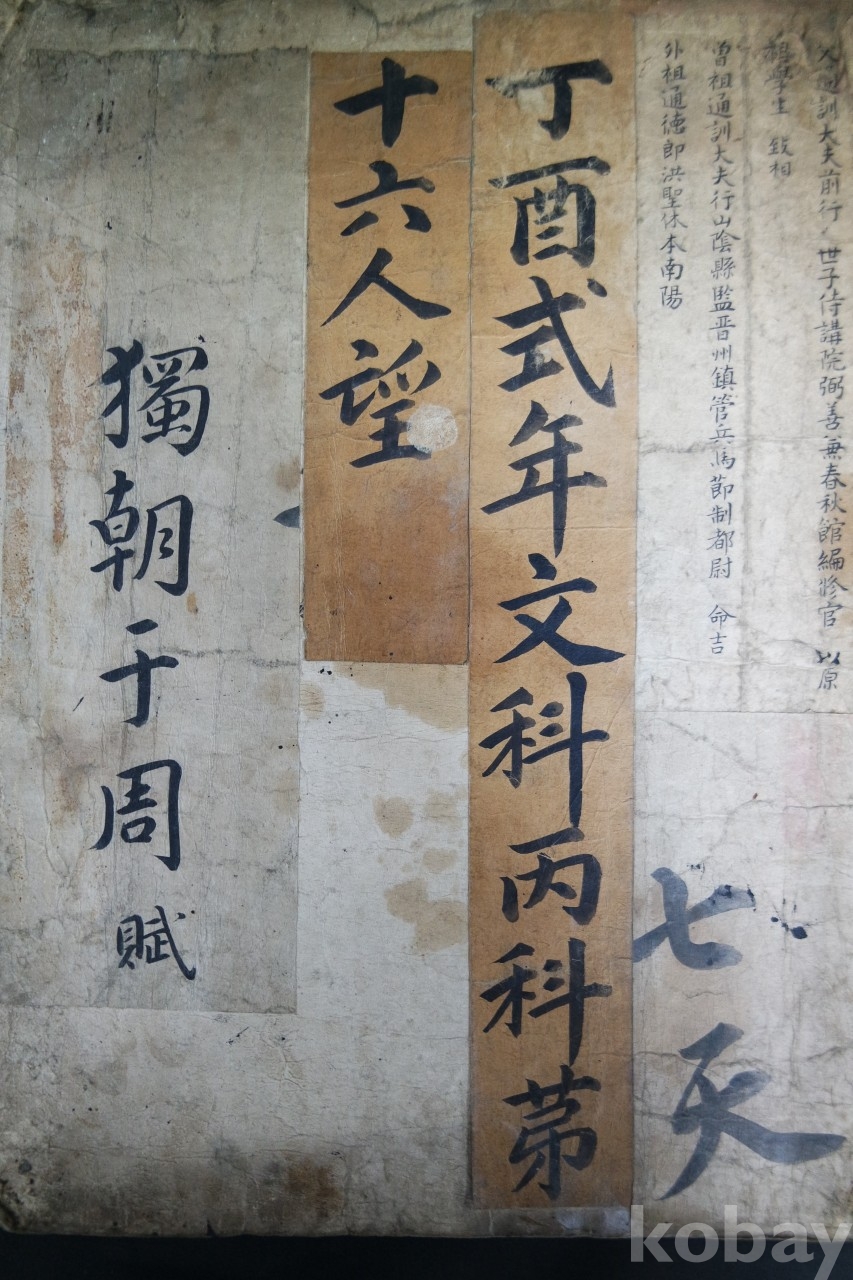 父通訓大夫前行 世子侍講院弼善兼春秋館編修官 以原
祖學生 致相
曾祖通訓大夫行山陰縣監晋州鎮管兵馬節制都尉 命吉
外祖通德郎洪聖休本南陽
七
丁酉式年文科丙科苐
十六人望
獨朝于周賦
kobay